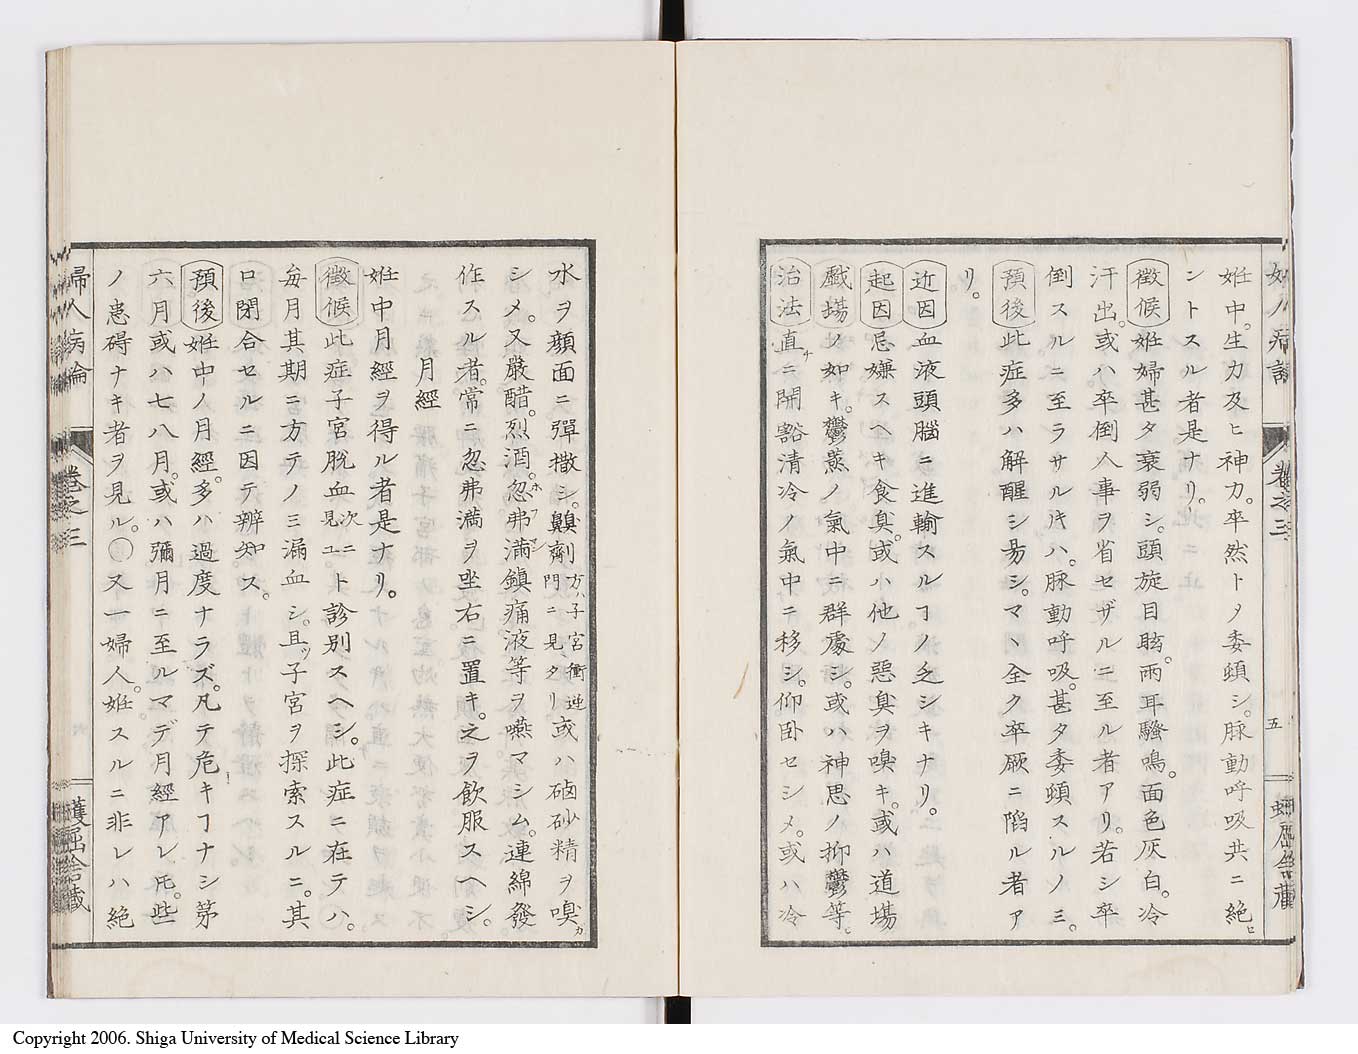 妊中。生力及ヒ神力。卒然トノ委頓シ。脉動呼吸共ニ絶ヒ
ントスル者是ナリ。
徴候 妊婦甚タ衰弱シ。頭旋目眩。兩耳騷鳴。面色灰白。冷
汗出。或ハ。卒倒人事ヲ省セザルニ至ル者アリ。若シ卒
倒スルニ至ラサルキハ。脉動呼吸。甚タ委頓スルノミ。
預後 此症多ハ解醒シ昜シ。マヽ全ク卒厥ニ陷ル者ア
リ。
近因 血液頭腦ニ進輸スルヿノ乏シキナリ。
起因 忌嫌スヘキ食臭。或ハ他ノ惡臭ヲ嗅キ。或ハ道場
戲場ノ如キ。鬱蒸ノ氣中ニ群處シ。或ハ神思ノ抑鬱等。
治法 直ニ開豁清冷ノ氣中ニ移シ。仰卧セシメ。或ハ冷
五
水ヲ顔面ニ彈撒シ。齅劑方ハ子宮衝逆門ニ見タリ或ハ硇砂精ヲ嗅カ
シメ。又嚴醋。烈酒。忽弗満鎮痛液等ヲ嚥マシム。連綿發
作スル者。常ニ忽弗満ヲ坐右ニ置キ。之ヲ飲服スヘシ。
月經
妊中月經ヲ得ル者是ナリ。
徴候 此症子宮脫血次ニ見ユ。ト診別スヘシ。此症ニ在テハ。
毎月其期ニ方テノミ漏血シ。且ツ子宮ヲ探索スルニ。其
口閉合セルニ因テ辨知。ス。
預後 妊中ノ月經。多ハ過度ナラズ。凡テ危キヿナシ第
六月或ハ七八月。或ハ彌月ニ至ルマデ月經アレ𪜈。些
ノ患碍ナキ者ヲ見ル。〇又一婦人。妊。スルニ非レハ絶
婦人病論 卷之三
Copyright 2006. Shiga University of Medical Science Library